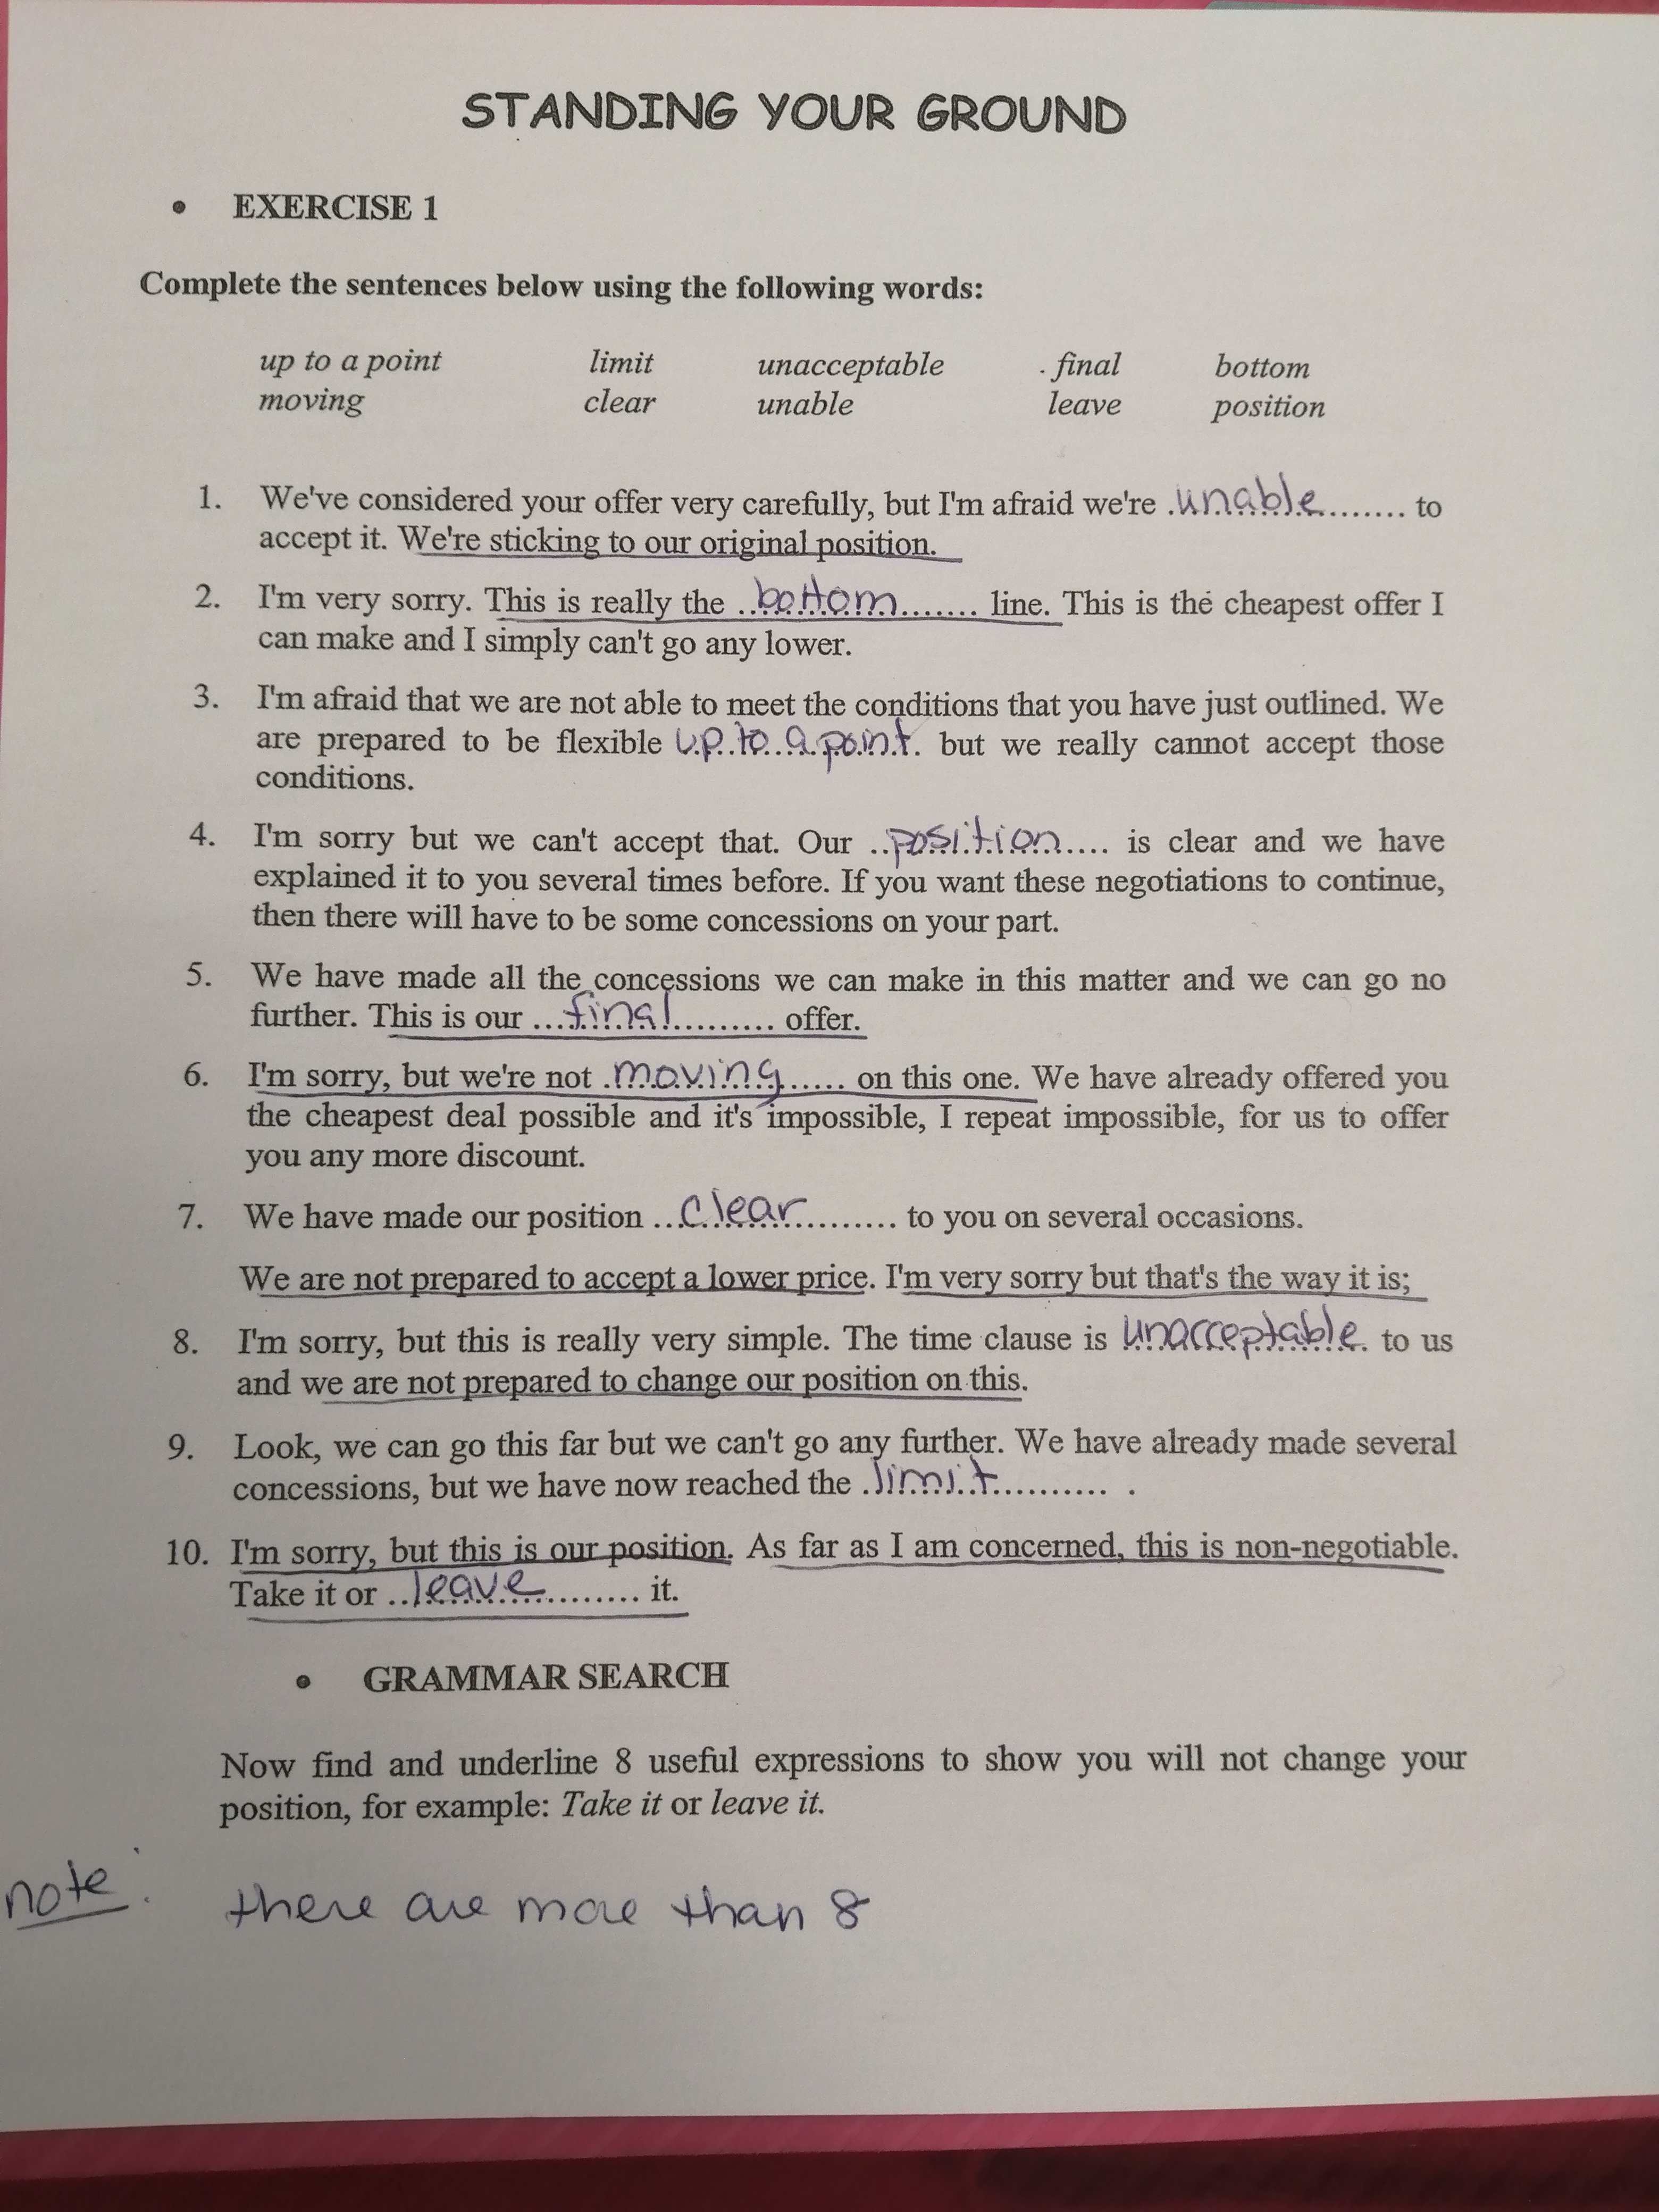 STANDING YOUR GROUND
• EXERCISE 1
Complete the sentences below using the following words:
up to a point limit unacceptable final bottom
moving clear unable leave position
1. We've considered your offer very carefully, but I'm afraid we're unable to
accept it. We're sticking to our original position.
2. I'm very sorry. This is really the bottom line. This is the cheapest offer I
can make and I simply can't go any lower.
3. I'm afraid that we are not able to meet the conditions that you have just outlined. We
are prepared to be flexible up to a point. but we really cannot accept those
conditions.
4. I'm sorry but we can't accept that. Our position is clear and we have
explained it to you several times before. If you want these negotiations to continue,
then there will have to be some concessions on your part.
5. We have made all the concessions we can make in this matter and we can go no
further. This is our final offer.
6. I'm sorry, but we're not moving on this one. We have already offered you
the cheapest deal possible and it's impossible, I repeat impossible, for us to offer
you any more discount.
7. We have made our position clear to you on several occasions.
We are not prepared to accept a lower price. I'm very sorry but that's the way it is;
8. I'm sorry, but this is really very simple. The time clause is unacceptable to us
and we are not prepared to change our position on this.
9. Look, we can go this far but we can't go any further. We have already made several
concessions, but we have now reached the limit .
10. I'm sorry, but this is our position. As far as I am concerned, this is non-negotiable.
Take it or leave it.
• GRAMMAR SEARCH
Now find and underline 8 useful expressions to show you will not change your
position, for example: Take it or leave it.
note: there are more than 8